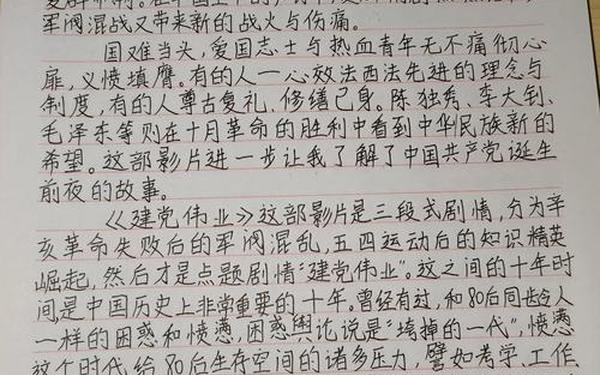 军阀混战又带来新的战火与伤痛。
国难当头，爱国志士与热血青年无不痛彻心
扉，义愤填膺。有的人一心效法西法先进的理念与
制度，有的人尊古复礼、修缮己身。陈独秀、李大钊、
毛泽东等则在十月革命的胜利中看到中华民族新的
希望。这部影片进一步让我了解了中国共产党诞生
前夜的故事。
《建党伟业》这部影片是三段式剧情，分为辛
亥革命失败后的军阀混乱，五四运动后的知识精英
崛起，然后才是点题剧情“建党伟业”。这之间的十年时
间是中国历史上非常重要的十年。曾经有过，和80后同龄人
一样的困惑和愤懑，困惑舆论说是“垮掉的一代”，愤懑
这个时代给80后生存空间的诸多压力，譬如考学、工作、